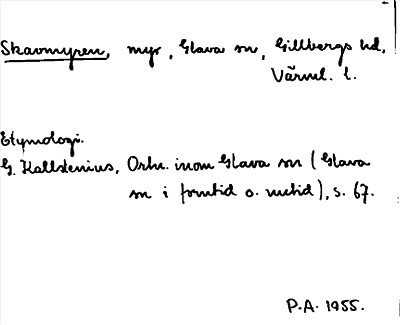 Skavmyren, myr, Glava sn, Gillbergs hd,
Värml. l.
Etymologi.
G. Kallstenius, Ortn. inom Glava sn (Glava
sn i forntid o. nutid), s. 67.
P.A. 1955.